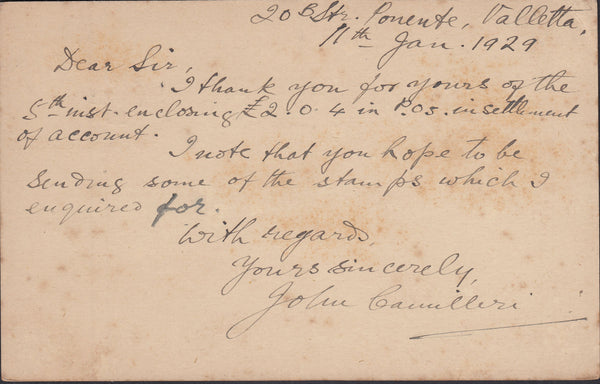 20B Str. Ponente, Valletta,
11th Jan. 1929
Dear Sir,
I thank you for yours of the
5th inst. enclosing £2.0.4 in P.Os. in settlement
of account.
I note that you hope to be
sending some of the stamps which I
enquired for.
With regards,
Yours sincerely,
John Camilleri